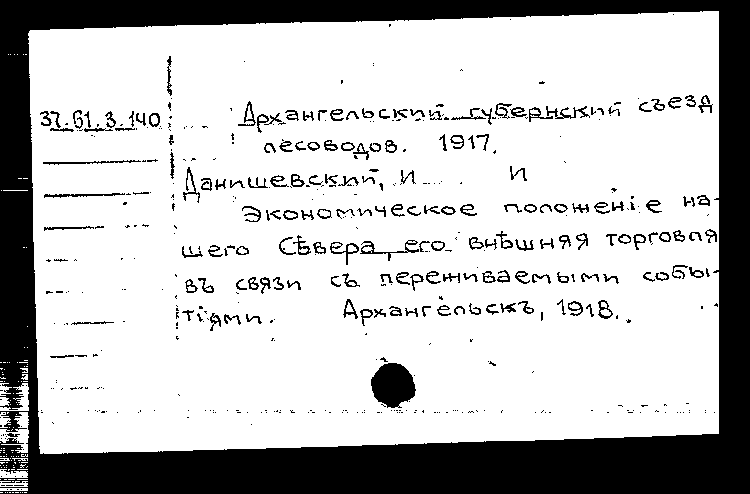 37.61.3.140
Архангельский губернский съезд
лесоводов. 1917.
Данишевский, И И
Экономическое положенiе на-
шего Сѣвера, его внѣшняя торговля
въ связи съ переживаемыми собы-
тiями. Архангельскъ, 1918.